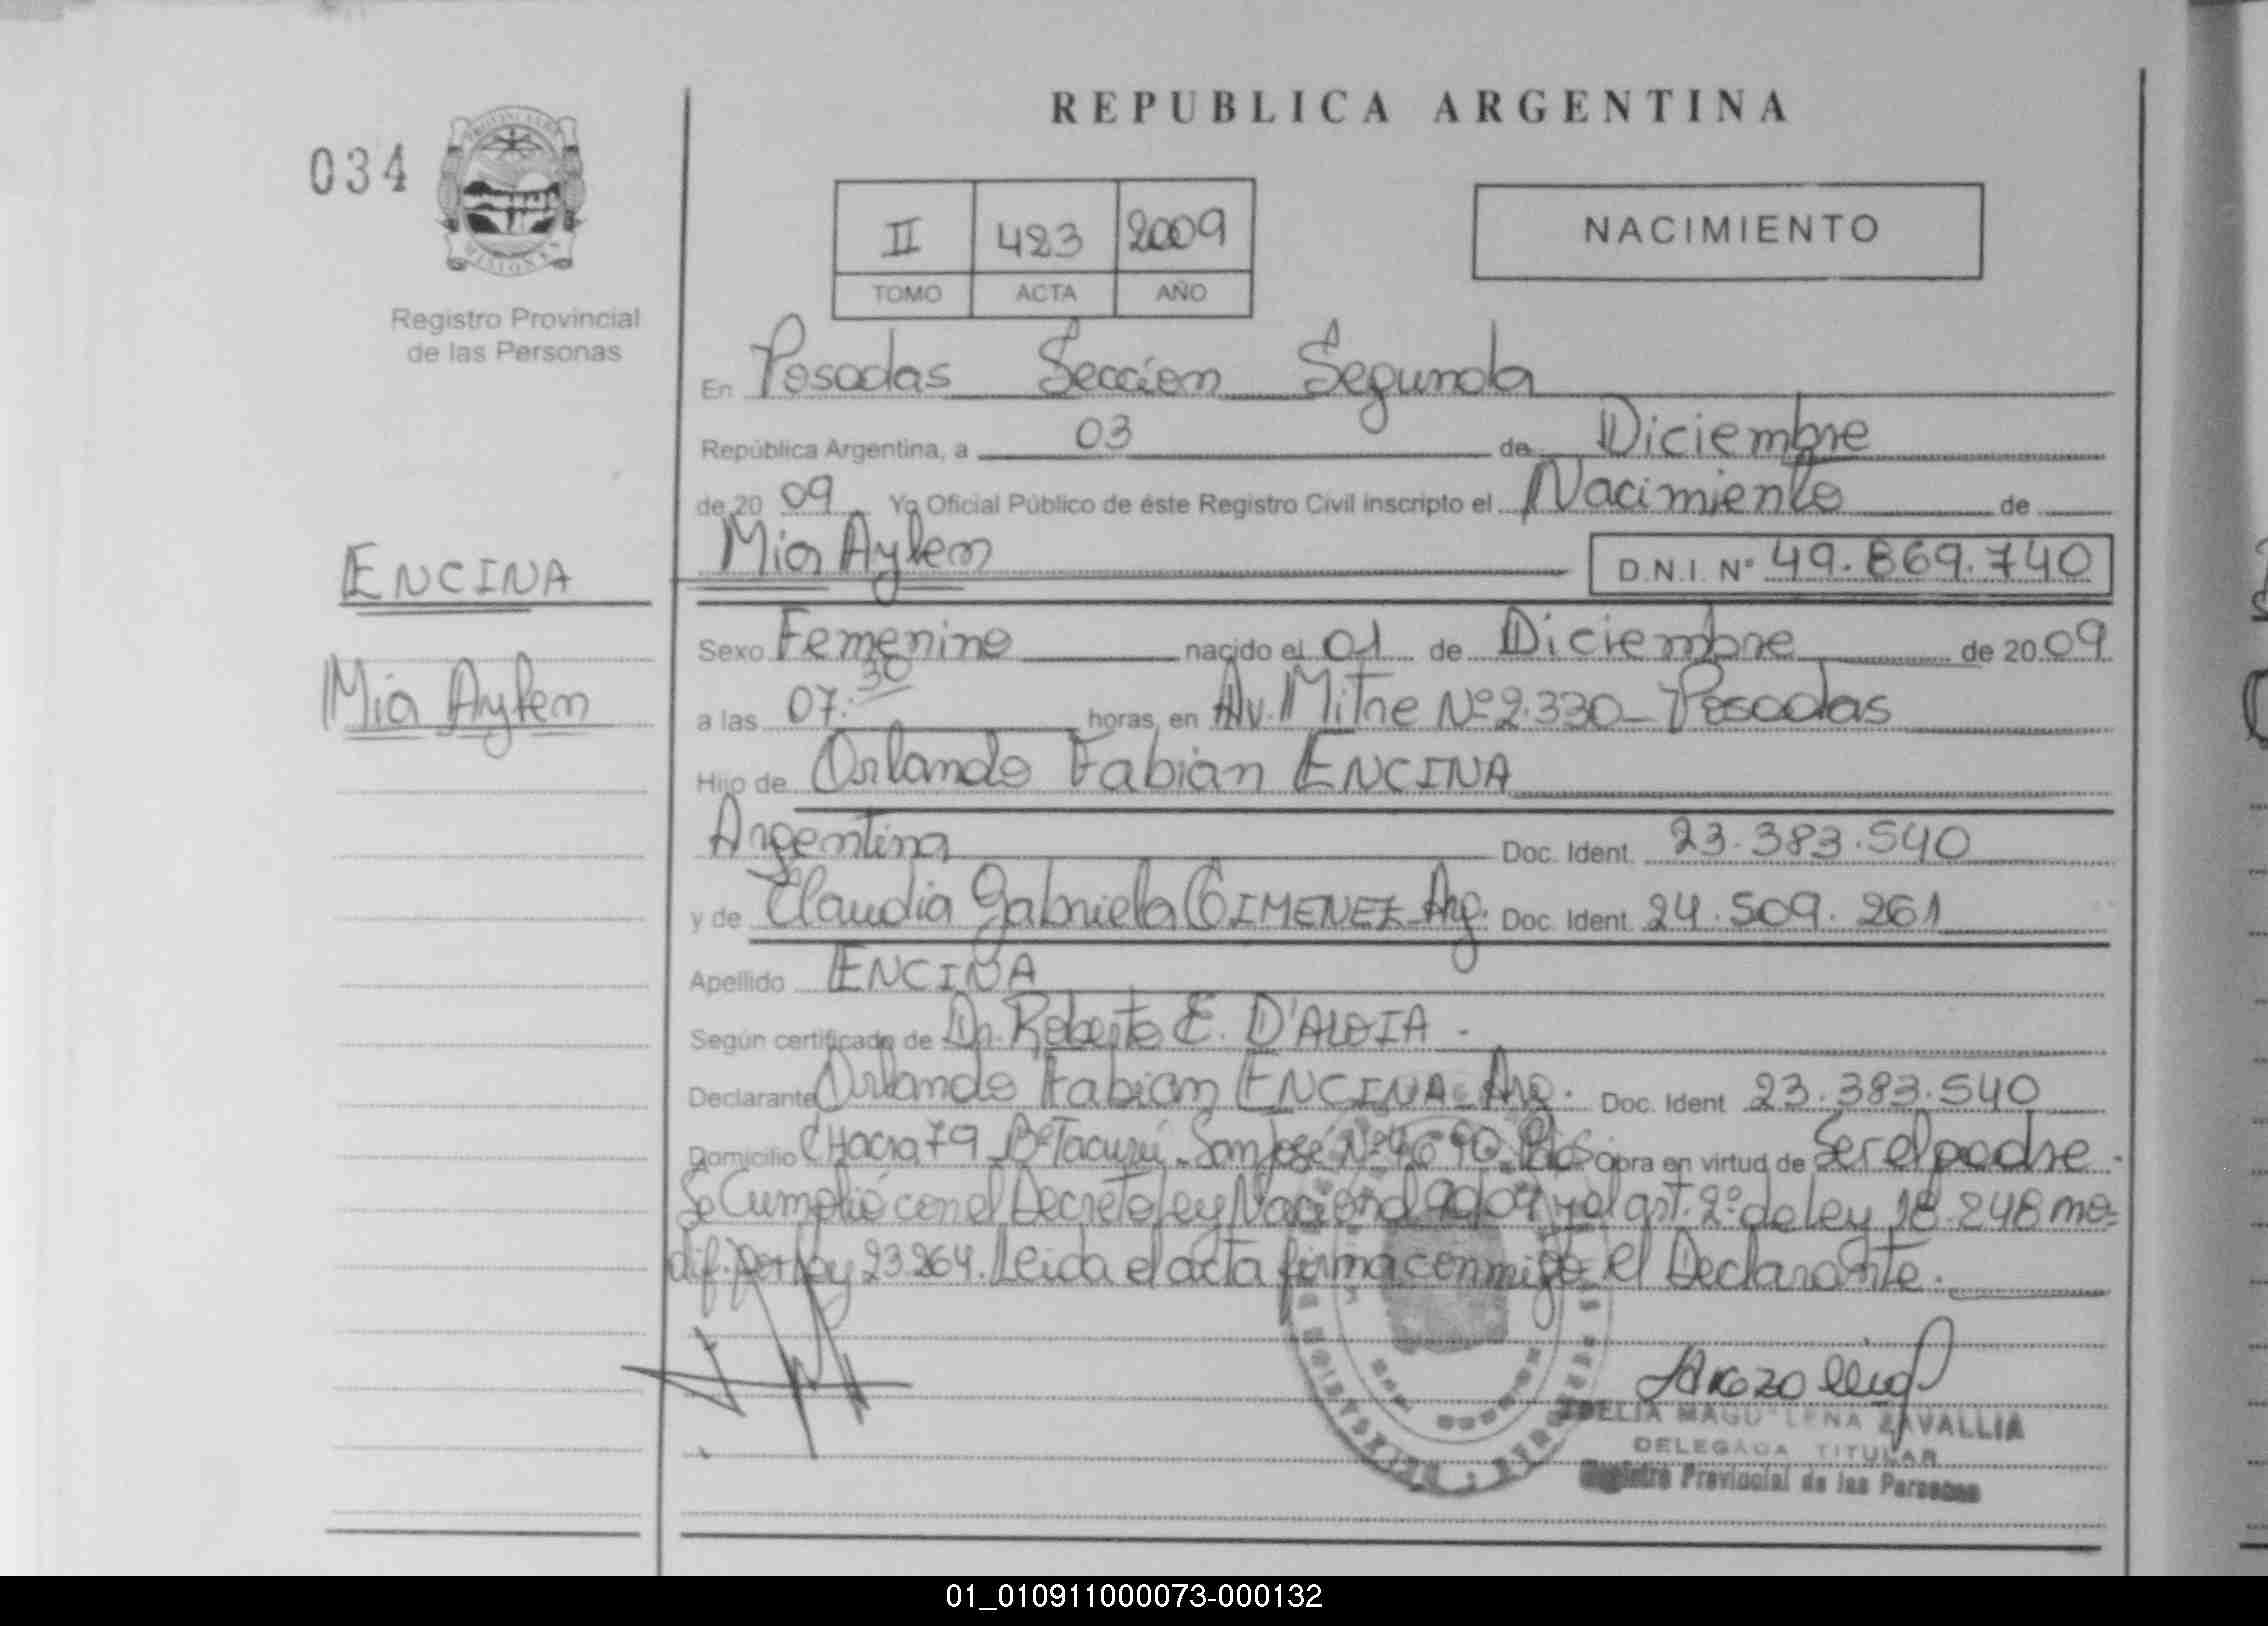 REPUBLICA ARGENTINA
034
PROVINCIA DE
MISIONES
Registro Provincial
de las Personas
II 423 2009
TOMO ACTA AÑO
NACIMIENTO
En Posadas Seccion Segunda
República Argentina, a 03 de Diciembre
de 20 09 Yo Oficial Público de éste Registro Civil inscripto el Nacimiento de
Mia Aylen D.N.I. Nº 49.869.740
ENCINA
Mia Aylen
Sexo Femenino nacido el 01 de Diciembre de 20 09
a las 07:30 horas, en Av. Mitre Nº 2.330 - Posadas
Hijo de Orlando Fabian ENCINA
Argentina Doc. Ident. 23.383.540
y de Claudia Gabriela GIMENEZ - Arg. Doc. Ident. 24.509.261
Apellido ENCINA
Según certificado de Dr. Roberto E. D'ALOIA -
Declarante Orlando Fabian ENCINA - Arg. Doc. Ident 23.383.540
Domicilio CHacra 79 Bº Tacurú - San José Nº 4690 - Pdas Obra en virtud de Ser el padre.
Se Cumplió con el Decreto ley Nacional y el art. 2º de ley 18.248 mo=
dif. por ley 23.264. Leida el acta firma conmigo el Declarante.
MAGDALENA ZAVALLIA
DELEGADA TITULAR
Registro Provincial de las Personas
01_010911000073-000132